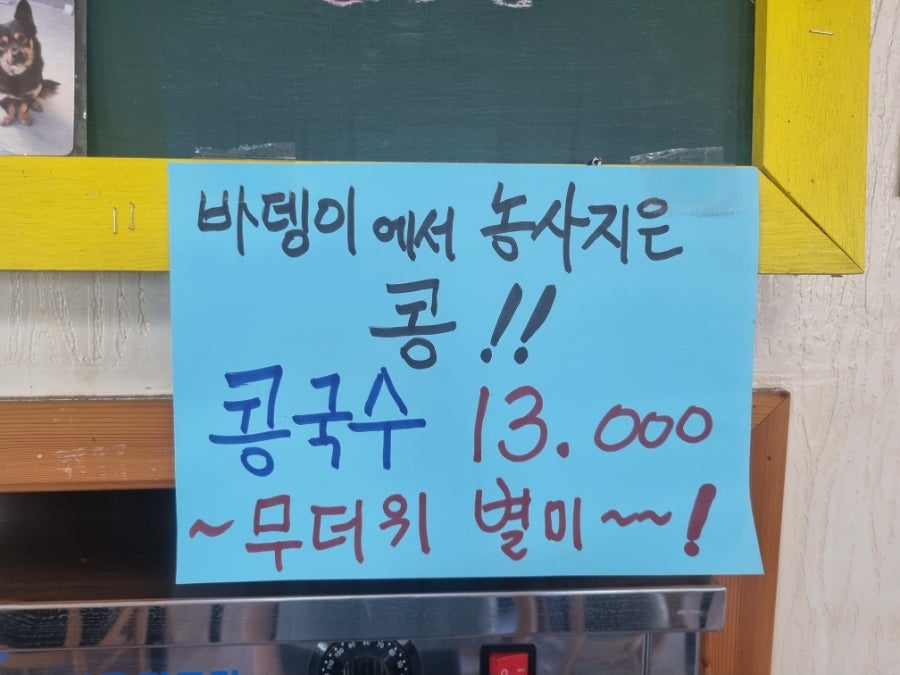 바뎅이에서 농사지은
콩!!
콩국수 13.000
~무더위 별미~~!